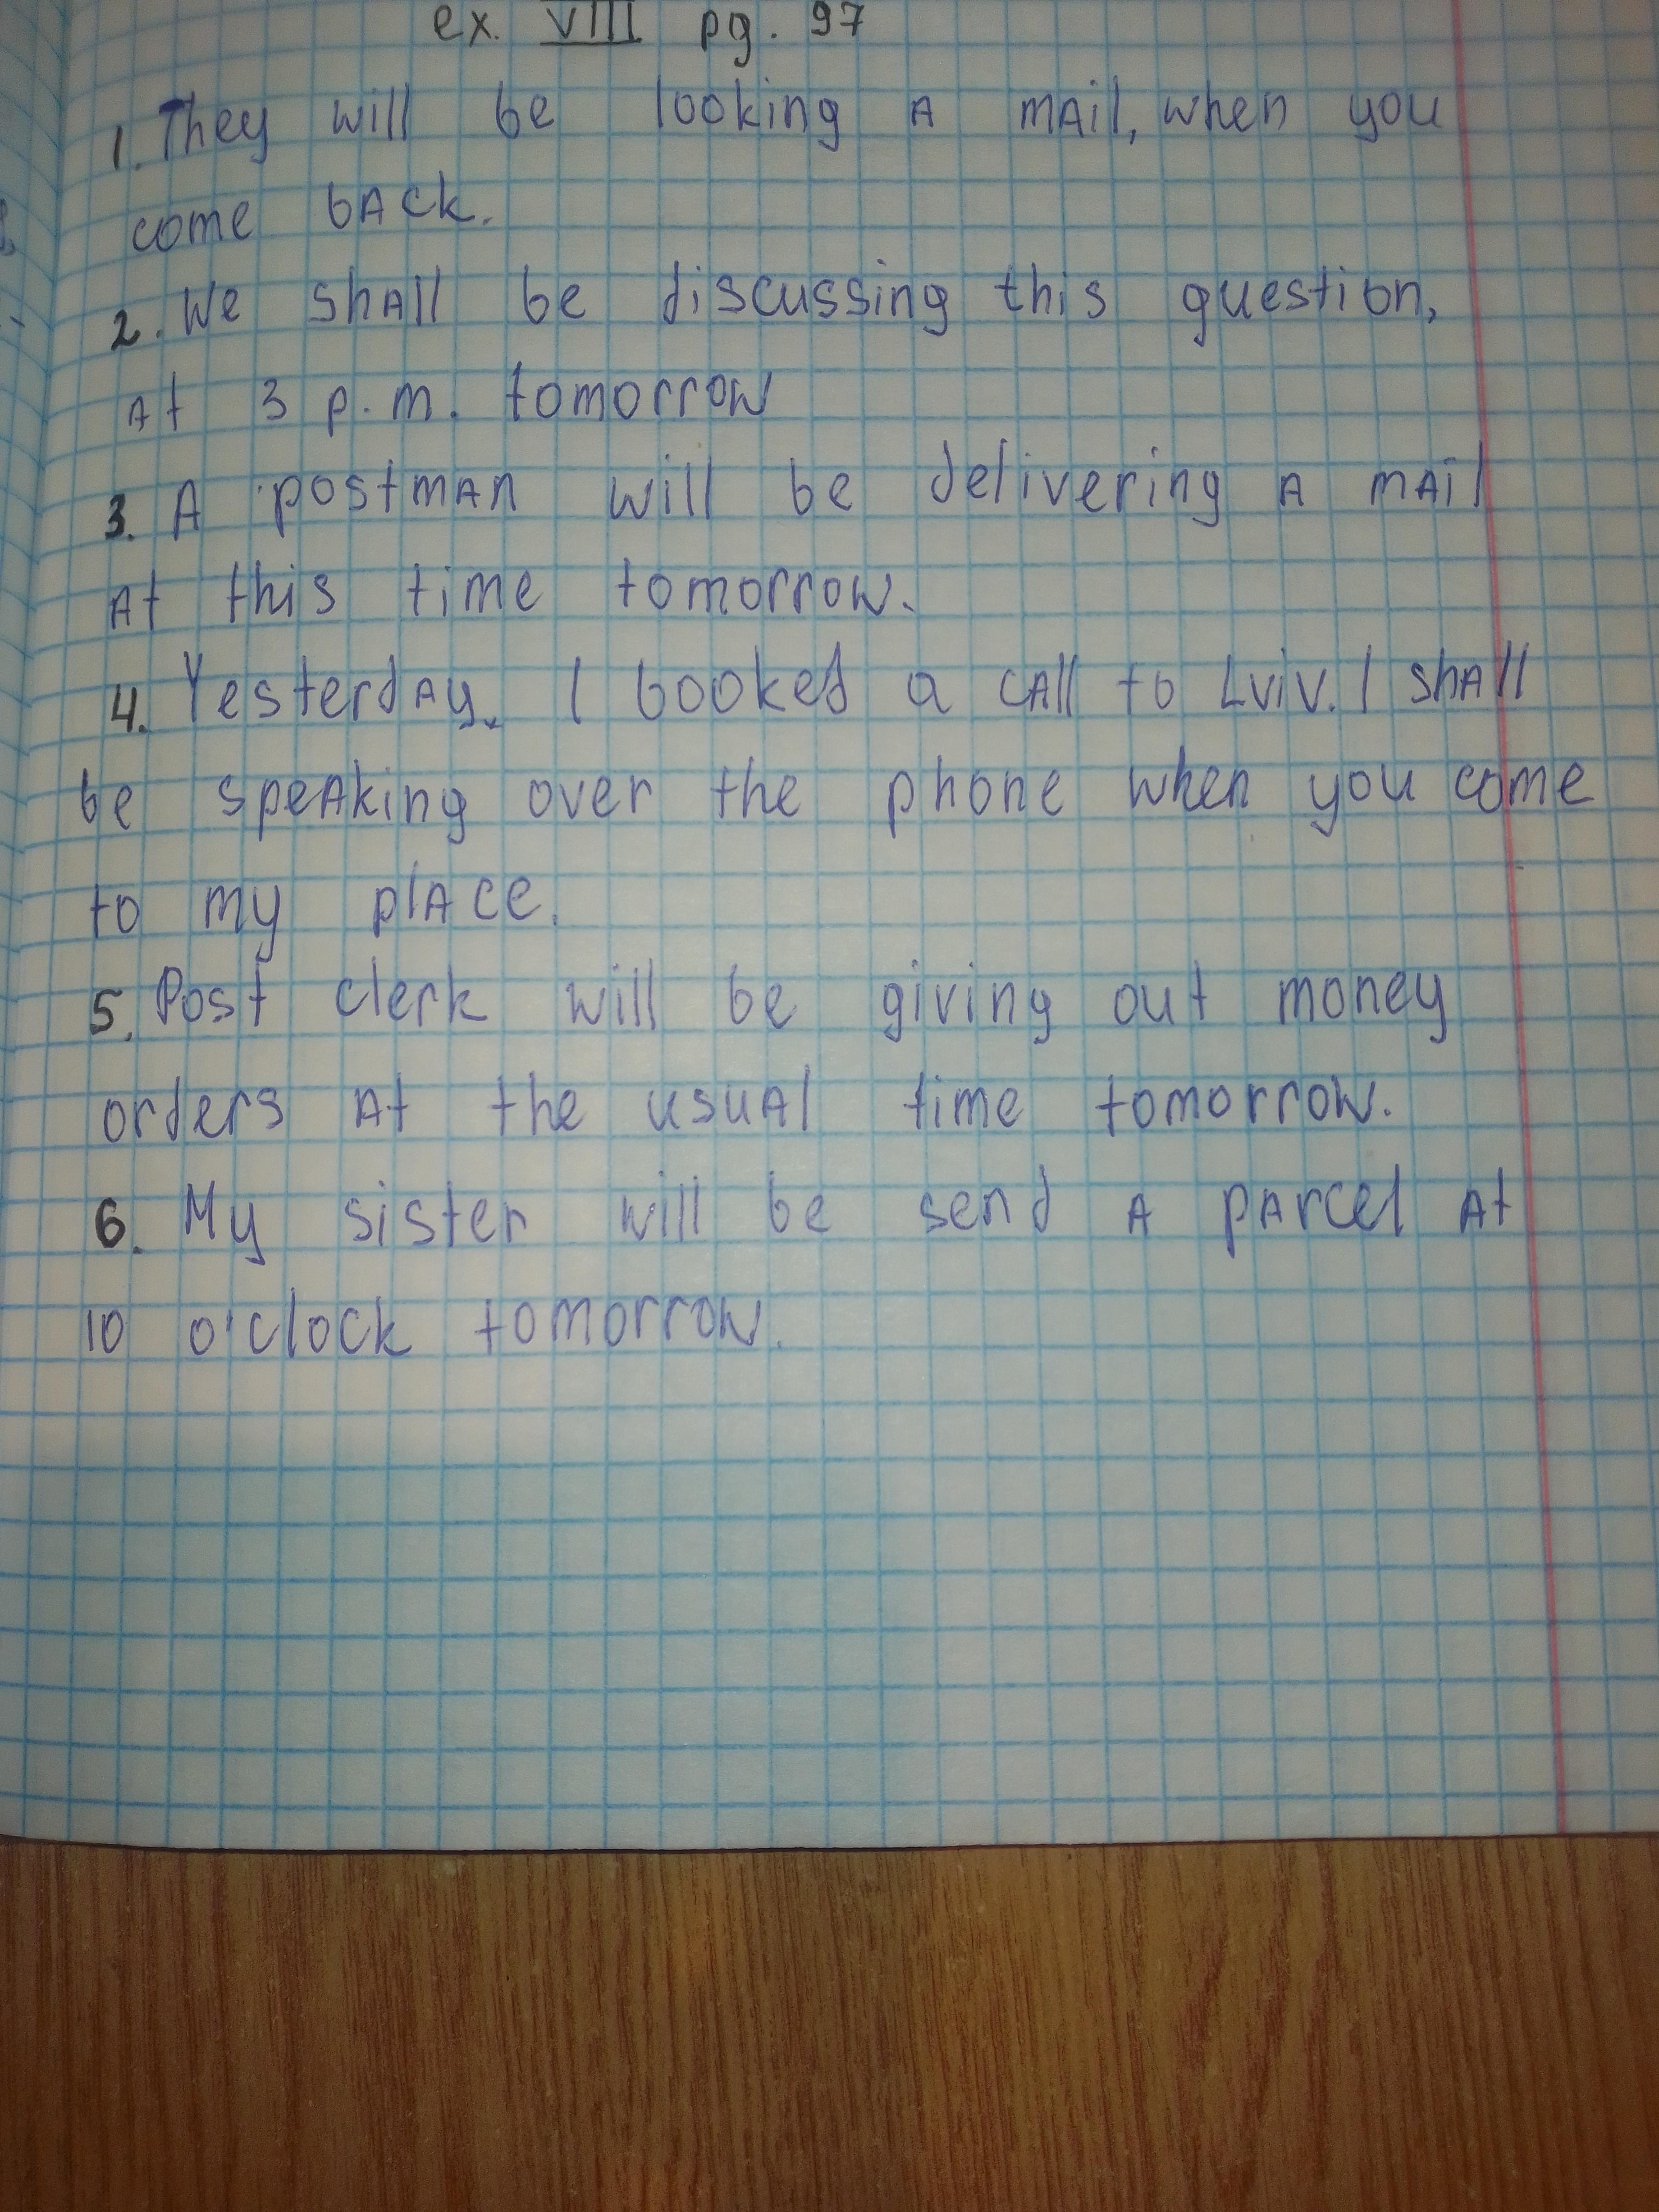 ex. VIII pg. 97
1. They will be looking a mail, when you
come back.
2. We shall be discussing this question,
at 3 p.m. tomorrow
3. A postman will be delivering a mail
at this time tomorrow.
4. Yesterday. I booked a call to Lviv. I shall
be speaking over the phone when you come
to my place.
5. Post clerk will be giving out money
orders at the usual time tomorrow.
6. My sister will be send a parcel at
10 o'clock tomorrow.